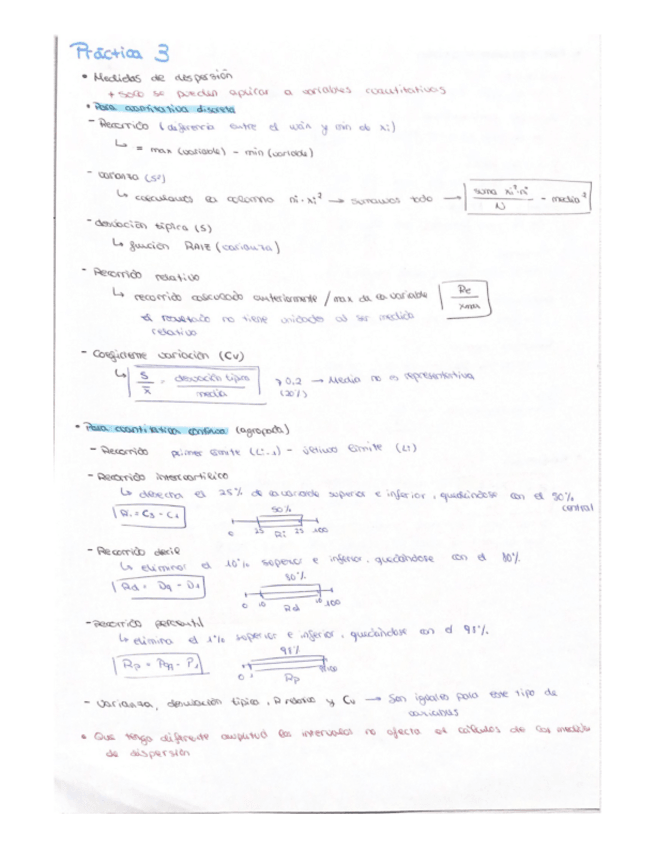 Práctica 3
• Medidas de dispersión
+ solo se pueden aplicar a variables cuantitativas
• Para cuantitativa discreta
- Recorrido (diferencia entre el máx y min de xi)
↳ = max (variable) - min (variable)
- varianza (S²)
↳ calculamos la columna ni·xi² → sumamos todo → suma xi²·ni / N - media²
- desviación típica (S)
↳ función RAIZ (varianza)
- Recorrido relativo
↳ recorrido calculado anteriormente / max de la variable Re / xmax
el resultado no tiene unidades al ser medida
relativa
- Coeficiente variación (CV)
↳ S / x̄ = desviación típica / media > 0,2 → Media no es representativa
(20%)
• Para cuantitativa continua (agrupada)
- Recorrido primer límite (Li-1) - último límite (Li)
- Recorrido intercuartílico
↳ desecha el 25% de la variable superior e inferior, quedándose con el 50%
central
Ri = C3 - C1
50%
0 25 Ri 25 100
- Recorrido decil
↳ eliminar el 10% superior e inferior, quedándose con el 80%
Rd = D9 - D1
80%
0 10 Rd 10 100
- Recorrido percentil
↳ elimina el 1% superior e inferior, quedándose con el 98%
Rp = P99 - P1
98%
0 1 Rp 100
- Varianza, desviación típica, R relativo y CV → Son iguales para este tipo de
variables
• Que tenga diferente amplitud los intervalos no afecta al cálculos de las medidas
de dispersión